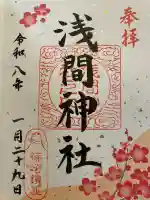 奉拝
浅間神社
令和八年
一月二十九日